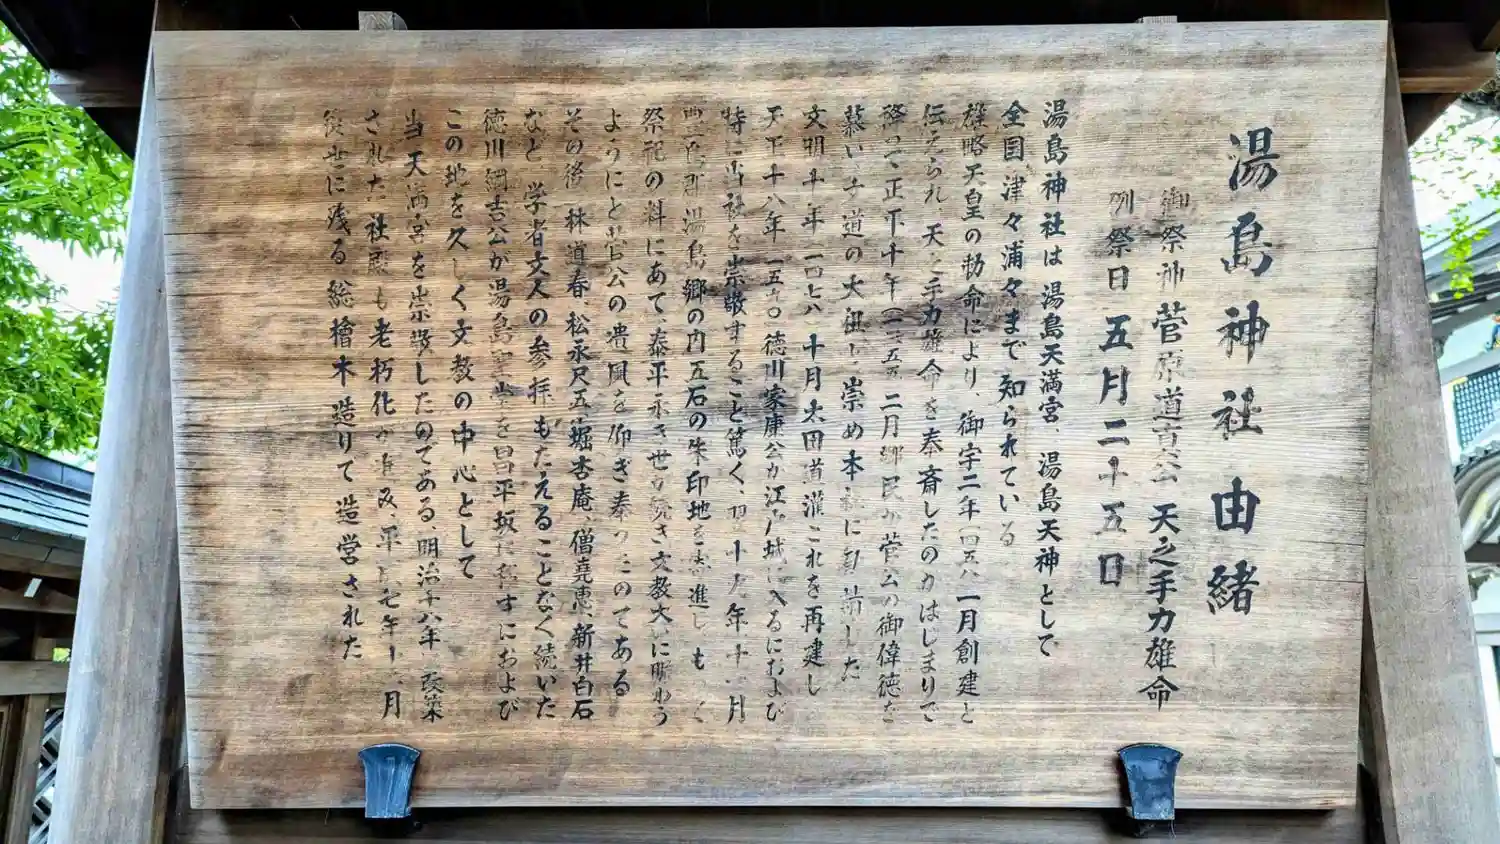 湯島神社由緒
御祭神 菅原道真公 天之手力雄命
例祭日 五月二十五日
湯島神社は 湯島天満宮 湯島天神として
全国津々浦々まで知られている
雄略天皇の勅命により、御宇二年(四五八)一月創建と
伝えられ、天之手力雄命を奉斎したのがはじまりで
降って正平十年(一三五五)二月郷民が菅公の御偉徳を
慕い 道の大祖と崇め本社に勧請した
文明十年(一四七八)十月太田道灌これを再建し
天正十八年(一五九〇)徳川家康公が江戸城に入るにおよび
特に当社を崇敬すること篤く、翌十九年十一月
豊島郡湯島郷の内五石の朱印地を寄進し もつて
祭祀の料にあて、泰平永き世が続き文教大いに賑わう
ようにと菅公の遺風を仰ぎ奉つたのである
その後、林道春、松永尺五、堀杏庵、僧堯恵、新井白石
など 学者文人の参拝もたえることなく続いた
徳川綱吉公が湯島聖堂を昌平坂に移すにおよび
この地を久しく文教の中心として
当天満宮を崇敬したのである、明治十八年 改築
された社殿も老朽化が進み、平成七年十二月
後世に残る総檜木造りで造営された